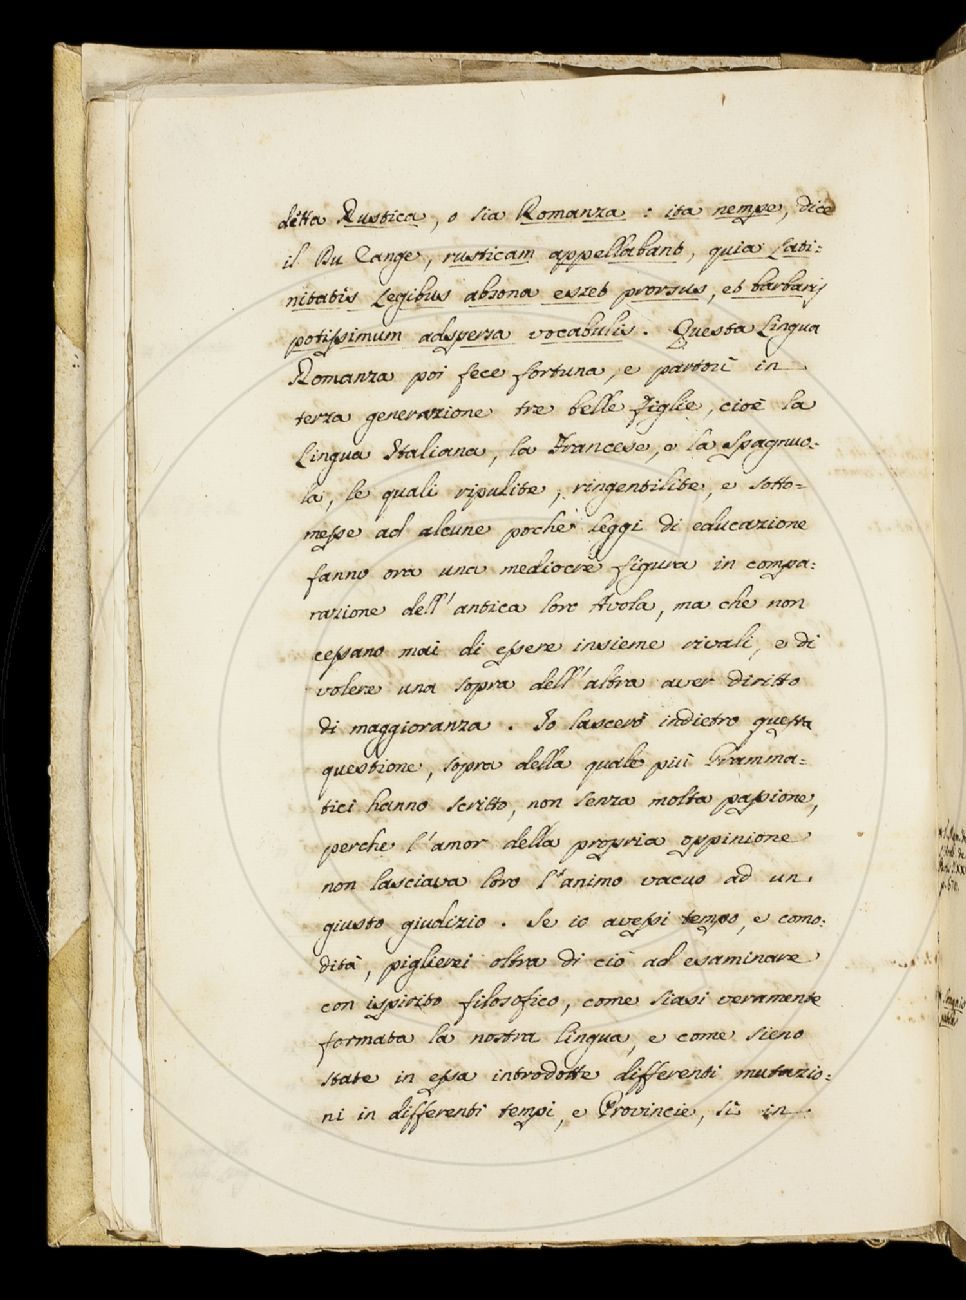 detta Rustica, o sia Romanza : ita nempe, dice
il Du Cange, rusticam appellabant, quia Lati=
nitatis Legibus absona esset prorsus, et barbaris
potissimum adspersa vocabulis. Questa Lingua
Romanza poi fece fortuna, e partorì in
terza generazione tre belle figlie, cioè la
Lingua Italiana, la Francese, e la Spagnuo=
la, le quali ripulite, ringentilite, e sotto=
messe ad alcune poche leggi di educazione
fanno ora una mediocre figura in compa=
razione dell'antica loro Avola, ma che non
cessano mai di essere insieme rivali, e di
volere una sopra dell'altra aver diritto
di maggioranza. Io lascerò indietro questa
questione, sopra della quale più Gramma=
tici hanno scritto, non senza molta passione,
perche l'amor della propria oppinione
non lasciava loro l'animo vacuo ad un
giusto giudizio. Se io avessi tempo, e como=
dità, piglierei oltra di ciò ad esaminare
con ispirito filosofico, come siasi veramente
formata la nostra lingua, e come sieno
state in essa introdotte differenti mutazio=
ni in differenti tempi, e Provincie, sì in